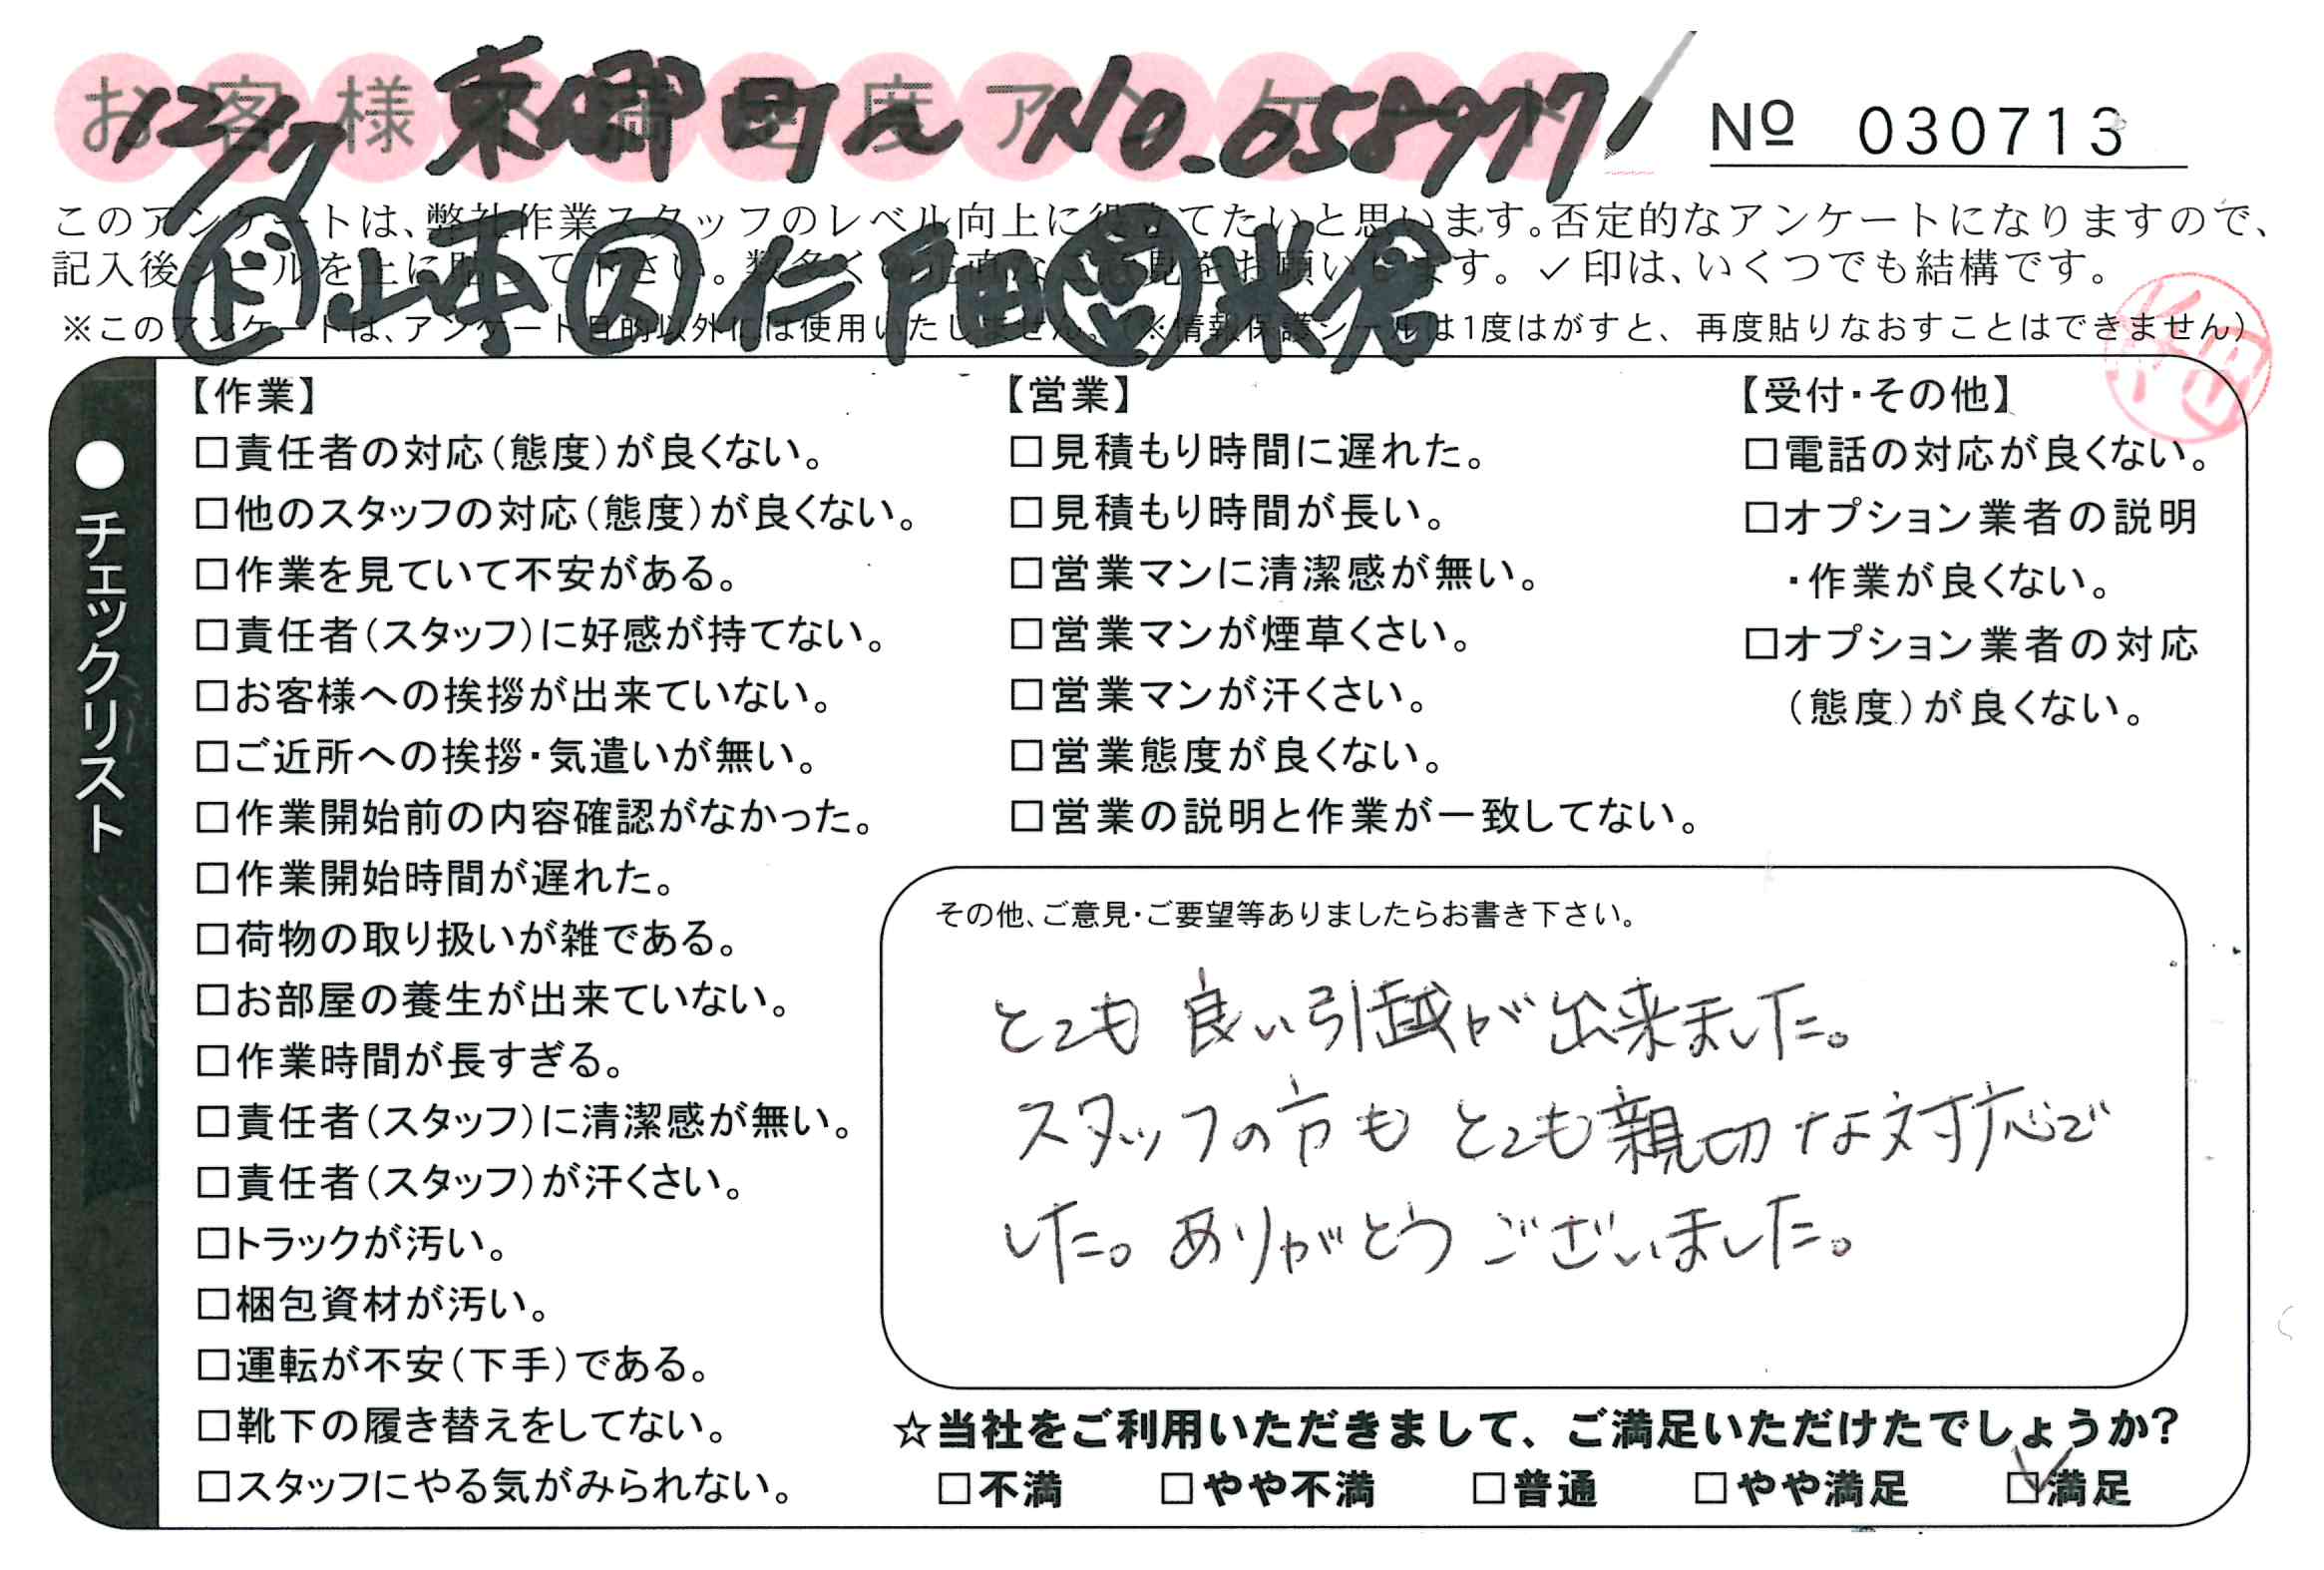 お客様不満足度アンケート
12/7 東郷町 No.058977
№ 030713
このアンケートは、弊社作業スタッフのレベル向上に役立てたいと思います。否定的なアンケートになりますので、
記入後シールを上に貼って下さい。数多くの正直なご意見をお願いします。✓印は、いくつでも結構です。
ド 山本 ス 仁戸田 営 米倉
※このアンケートは、アンケート目的以外には使用いたしません。(※情報保護シールは1度はがすと、再度貼りなおすことはできません)
●チェックリスト
【作業】
□責任者の対応(態度)が良くない。
□他のスタッフの対応(態度)が良くない。
□作業を見ていて不安がある。
□責任者(スタッフ)に好感が持てない。
□お客様への挨拶が出来ていない。
□ご近所への挨拶・気遣いが無い。
□作業開始前の内容確認がなかった。
□作業開始時間が遅れた。
□荷物の取り扱いが雑である。
□お部屋の養生が出来ていない。
□作業時間が長すぎる。
□責任者(スタッフ)に清潔感が無い。
□責任者(スタッフ)が汗くさい。
□トラックが汚い。
□梱包資材が汚い。
□運転が不安(下手)である。
□靴下の履き替えをしてない。
□スタッフにやる気がみられない。
【営業】
□見積もり時間に遅れた。
□見積もり時間が長い。
□営業マンに清潔感が無い。
□営業マンが煙草くさい。
□営業マンが汗くさい。
□営業態度が良くない。
□営業の説明と作業が一致してない。
【受付・その他】
□電話の対応が良くない。
□オプション業者の説明
・作業が良くない。
□オプション業者の対応
(態度)が良くない。
その他、ご意見・ご要望等ありましたらお書き下さい。
とても良い引越が出来ました。
スタッフの方もとても親切な対応で
した。ありがとうございました。
☆当社をご利用いただきまして、ご満足いただけたでしょうか?
□不満 □やや不満 □普通 □やや満足 ☑満足